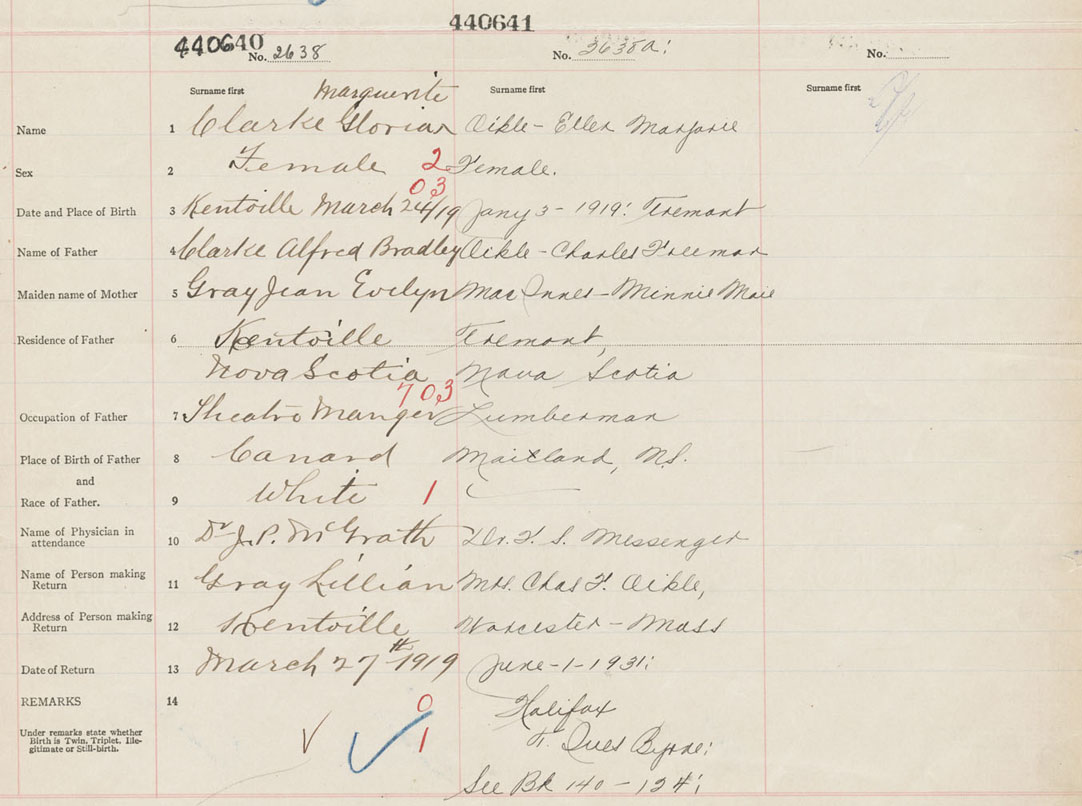 440641
440640 No. 2638 No. 2638a: No.
Surname first Surname first Surname first
Marguerite
Name 1 Clarke Gloria Oikle - Ellen Marjorie
Sex 2 Female 2 Female.
03
Date and Place of Birth 3 Kentville March 24/19 Jany 3 - 1919: Tremont
Name of Father 4 Clarke Alfred Bradley Oikle - Charles Freeman
Maiden name of Mother 5 Gray Jean Evelyn MacInnes - Minnie Maie
Residence of Father 6 Kentville Tremont,
Nova Scotia Nova Scotia
703
Occupation of Father 7 Theatre Manger Lumberman
Place of Birth of Father 8 Canard Maitland, N.S.
and
Race of Father. 9 White 1
Name of Physician in
attendance 10 Dr J.P. McGrath Dr. F. S. Messenger
Name of Person making
Return 11 Gray Lillian Mrs. Chas F. Oikle,
Address of Person making
Return 12 Kentville Worcester - Mass
Date of Return 13 March 27th 1919 June - 1 - 1931:
REMARKS 14 0 Halifax
Under remarks state whether
Birth is Twin, Triplet, Ille-
gitimate or Still-birth. 1 Byrne:
See Bk 140 - 124: